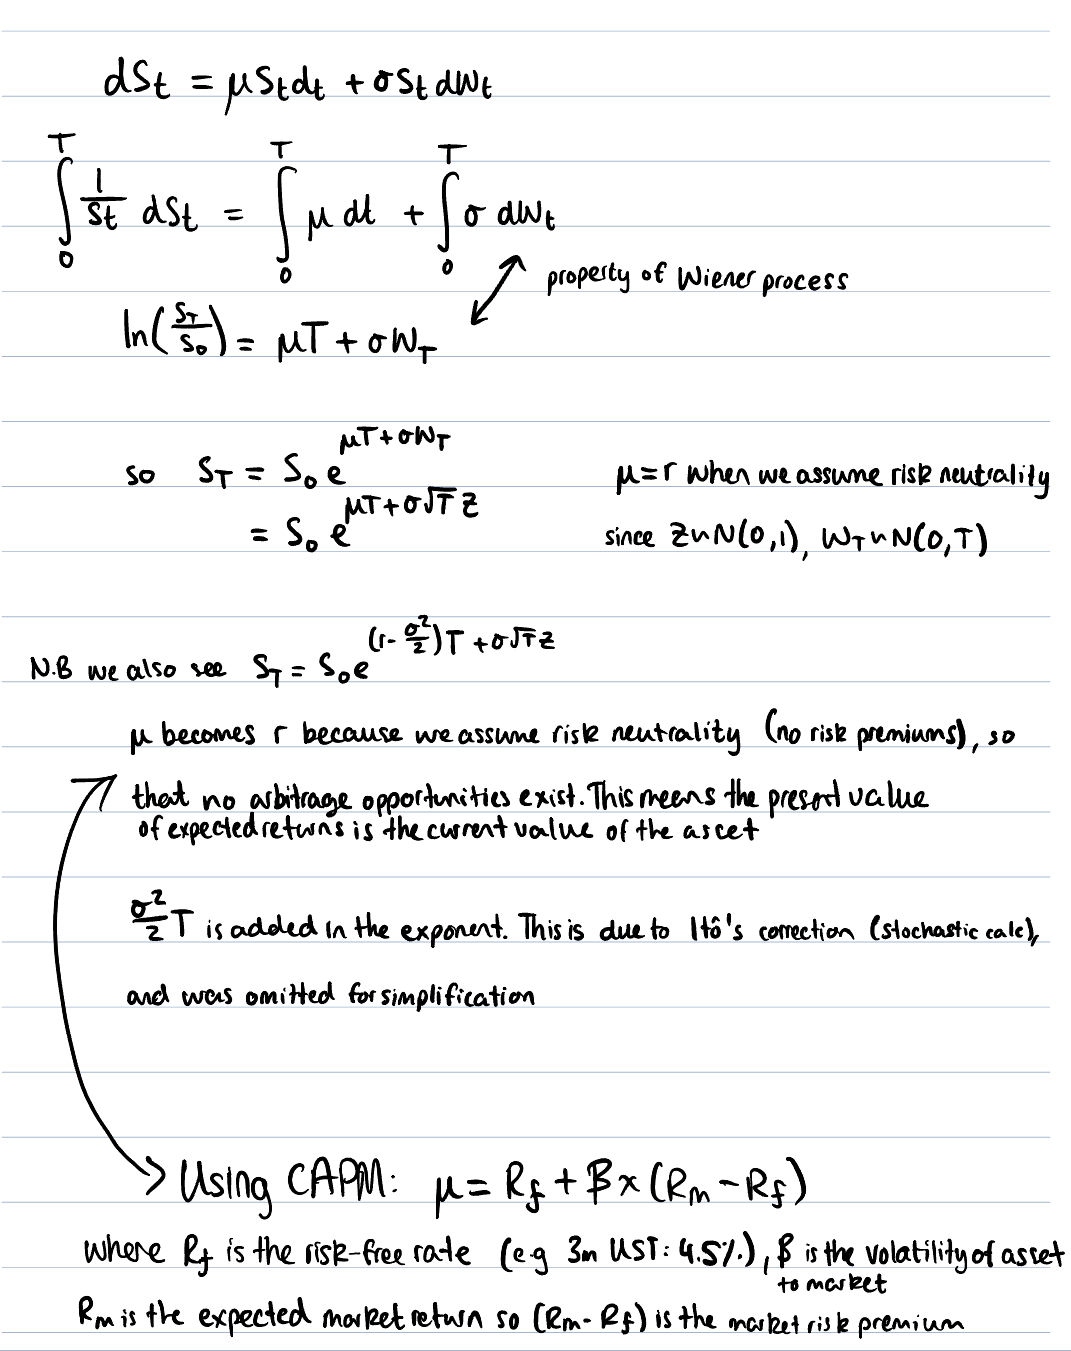 dSt = μStdt + σSt dWt
∫₀ᵀ 1/St dSt = ∫₀ᵀ μ dt + ∫₀ᵀ σ dWt
property of Wiener process
ln(S_T/S₀) = μT + σW_T
so S_T = S₀ e^(μT+σW_T) μ=r when we assume risk neutrality
= S₀ e^(μT+σ√T Z) since Z~N(0,1), W_T~N(0,T)
N.B we also see S_T = S₀e^((r-σ²/2)T+σ√T Z)
μ becomes r because we assume risk neutrality (no risk premiums), so
that no arbitrage opportunities exist. This means the present value
of expected returns is the current value of the asset
σ²/2 T is added in the exponent. This is due to Itô's correction (stochastic calc),
and was omitted for simplification
Using CAPM: μ = Rf + β x (Rm - Rf)
where Rf is the risk-free rate (e.g 3m UST: 4.5%.), β is the volatility of asset
to market
Rm is the expected market return so (Rm - Rf) is the market risk premium